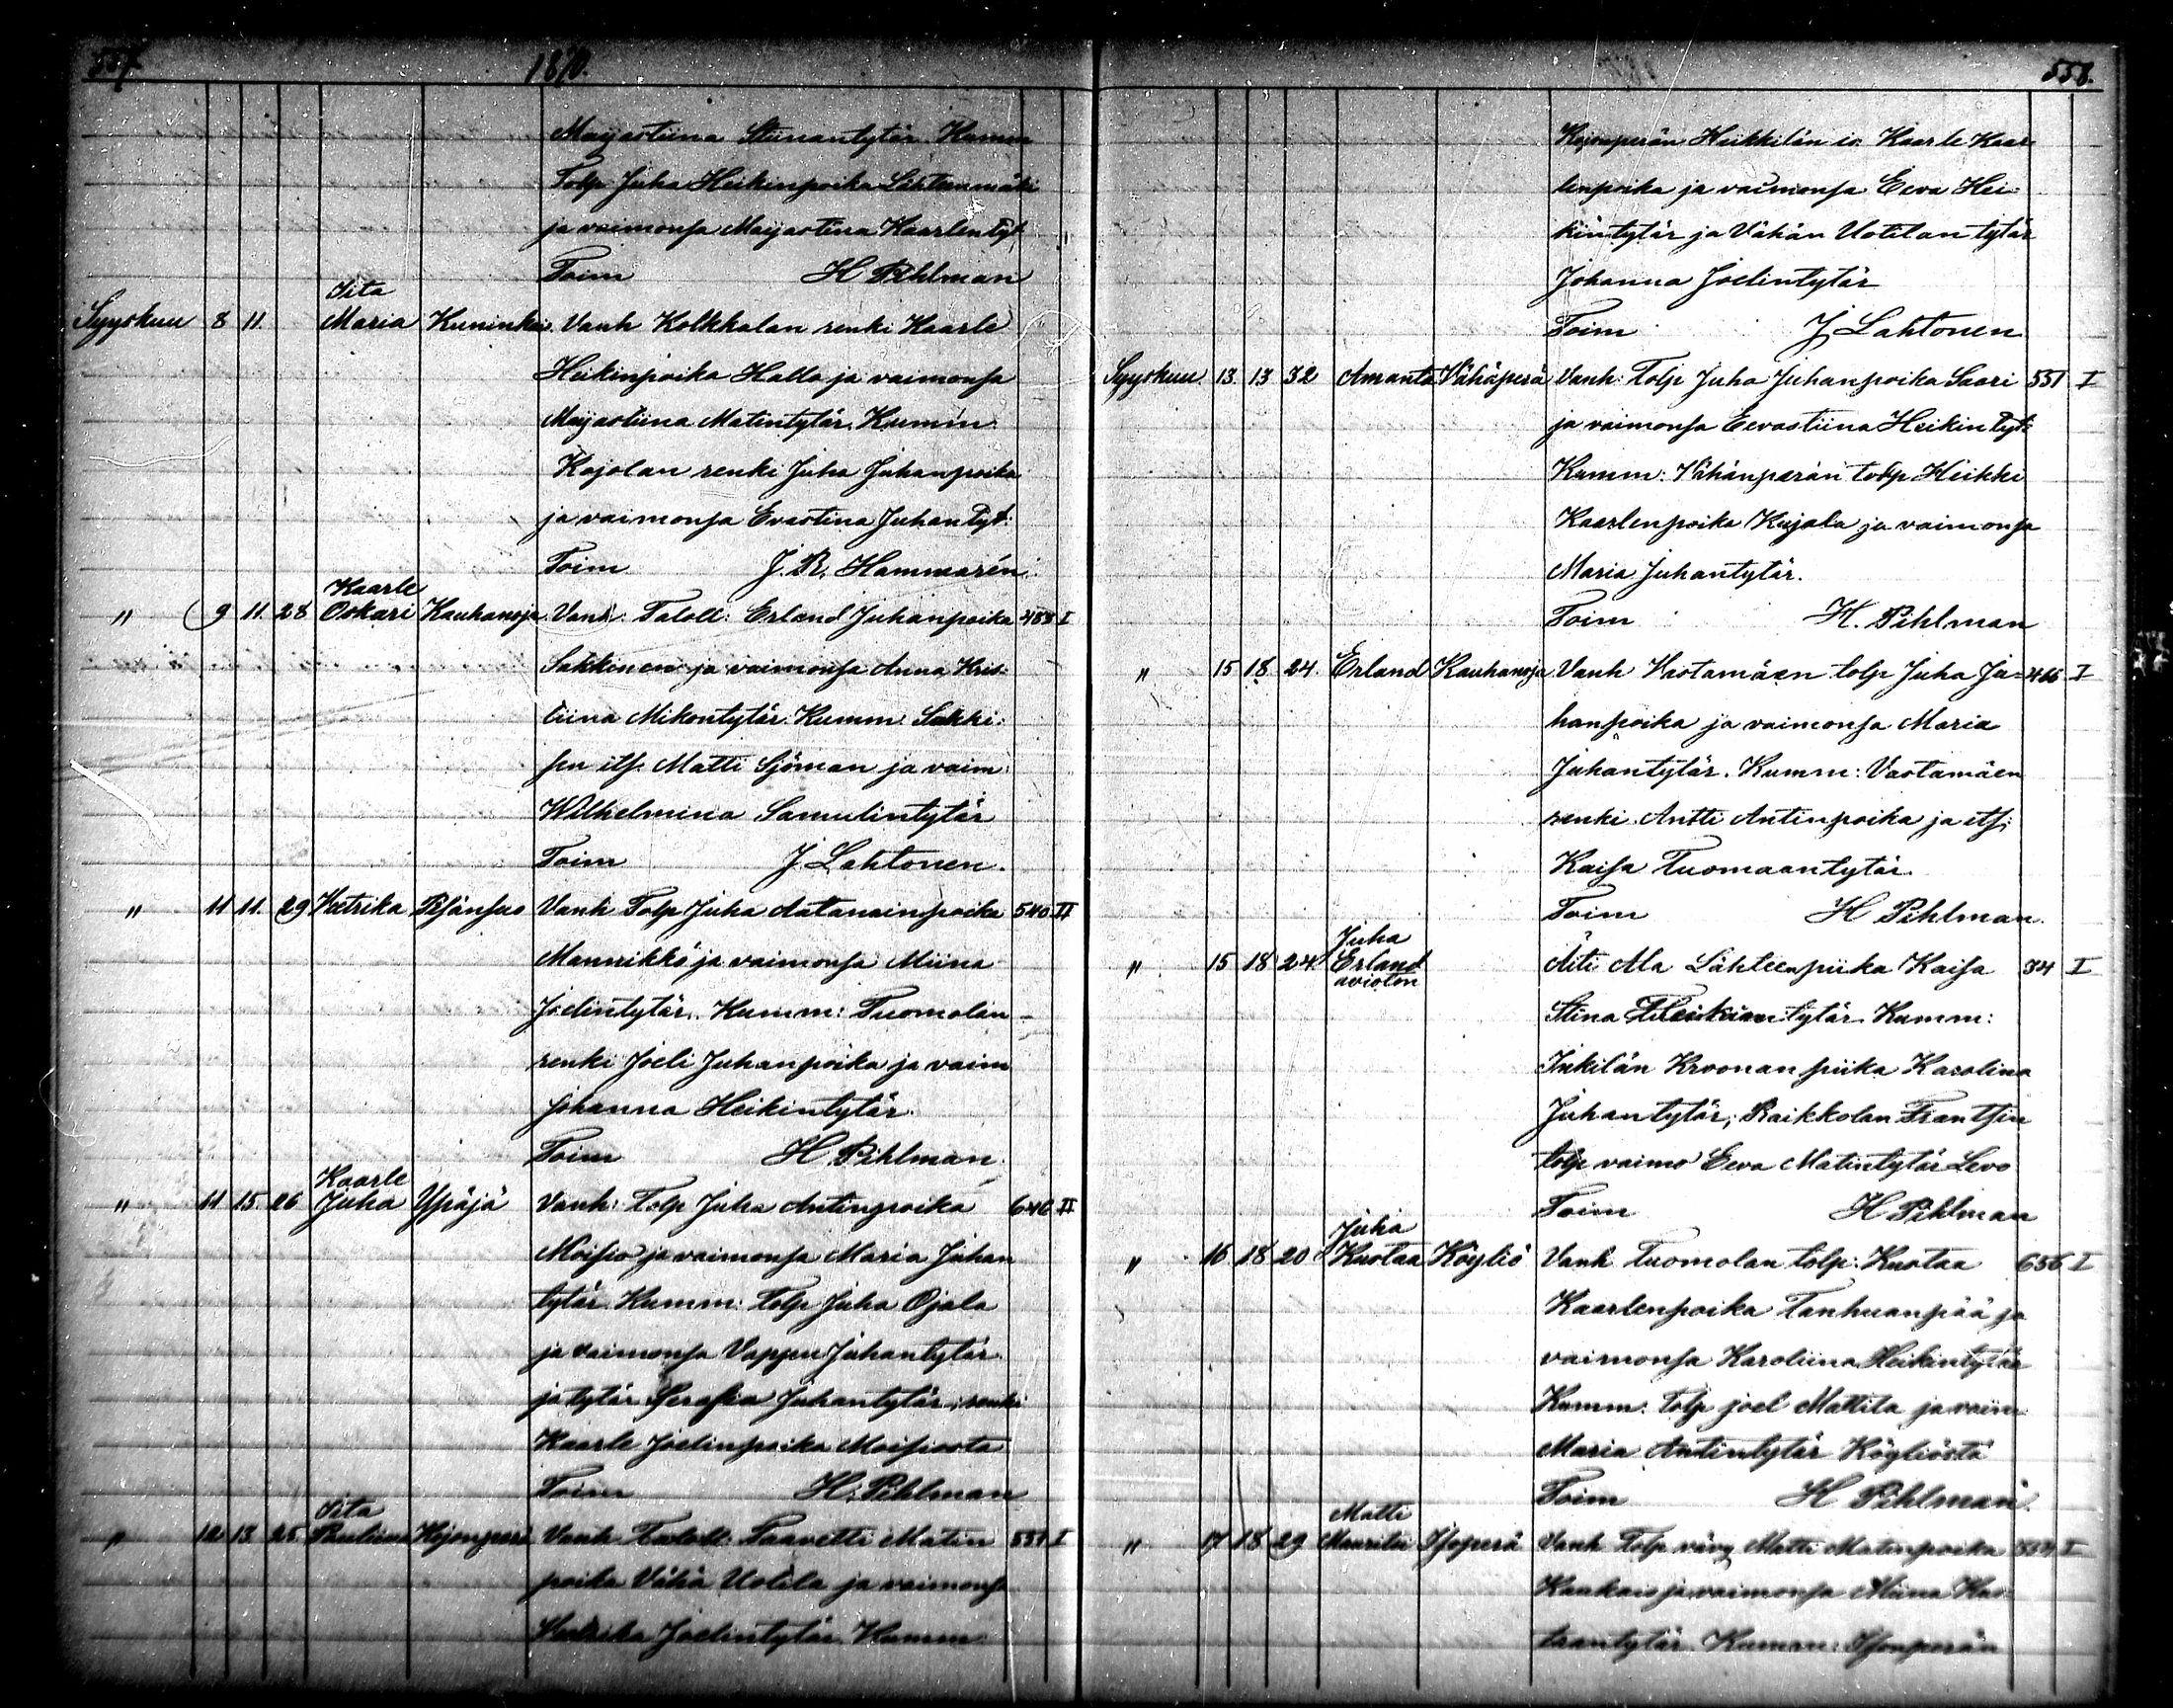 557. 1870.
Maijastiina Stiinantytär. Kumm
Tolp. Juha Heikinpoika Lähteenmäki
ja vaimonsa Maijastina Kaarlentyt
Toim H Pihlman
Iita
Syyskuu 8 11. Maria Kuninkais. Vanh Kolkkalan renki Kaarle
Heikinpoika Hallo ja vaimonsa
Maijastiina Matintytär. Kumm.
Kojolan renki Juha Juhanpoika
ja vaimonsa Evastina Juhantyt:
Toim J. R. Hammarén.
Kaarle
" 9 11. 28 Oskari Kauhanoja. Vanh: Taloll: Erland Juhanpoika 488 I
Sakkinen ja vaimonsa Anna Kris:
tiina Mikontytär. Kumm: Sakki:
sen its. Matti Sjöman ja vaim:
Wilhelmina Samulintytär
Toim J Lahtonen.
" 11 11. 29 Hetrika Ylänsuo Vanh Tolp Juha Aatanainpoika 540 II
Mannikkö ja vaimonsa Miina
Joelintytär. Kumm: Tuomolan
renki Joeli Juhanpoika ja vaim
Johanna Heikintytär.
Toim H. Pihlman.
Kaarle
" 11 15. 26 Juha Ypäjä Vanh: Tolp Juha Antinpoika 646 II
Moisio ja vaimonsa Maria Juhan
tytär. Kumm: Tolp Juha Ojala
ja vaimonsa Vappu Juhantytär
ja tytär Serafia Juhantytär, renki
Kaarle Joelinpoika Moisiosta
Toim H. Pihlman
Iita
" 12 13. 25. Pauliina Kojonperä Vanh Taloll: Taavetti Matin 551 I
poika Vähä Uotila ja vaimonsa
Hedrika Joelintytär. Kumm:
558.
Kojonperän Heikkilän is: Kaarle Kaar
lenpoika ja vaimonsa Eeva Hei
kintytär ja Vähän Uotilan tytär
Johanna Joelintytär
Toim J Lahtonen
Syyskuu. 13. 13 32 Amanta Vähäperä Vanh: Tolp Juha Juhanpoika Saari 551 I
ja vaimonsa Eevastiina Heikintyt:
Kumm: Vähänperän tolp Heikki
Kaarlenpoika Kujala ja vaimonsa
Maria Juhantytär.
Toim H. Pihlman
" 15 18 24. Erland Kauhanoja. Vanh Vastamäen tolp Juha Ju= 466 I
hanpoika ja vaimonsa Maria
Juhantytär. Kumm: Vastamäen
renki Antti Antinpoika ja its:
Kaisa Tuomaantytär.
Toim H Pihlman.
Juha
" 15 18 24 Erland Äiti Ala Lähteenpiika Kaisa 34 I
avioton
Stina Heikintytär. Kumm:
Inkilän Kroonan piika Karolina
Juhantytär, Raikkolan Frantsin
tolp vaimo Eeva Matintytär Levo
Toim H Pihlman
Juha
" 16 18 20 Kustaa Köyliö Vanh Tuomolan tolp: Kustaa 656 I
Kaarlenpoika Tanhuanpää ja
vaimonsa Karoliina Heikintytär
Kumm. Tolp Joel Mattila ja vaim
Maria Antintytär Köyliöstä
Toim H Pihlman.
Matti
" 17 18 29 Mauritsi Isoperä Vanh Tolp vävy Matti Matinpoika I
Kaukais ja vaimonsa Miina Kus
taantytär. Kumm: Isonperän